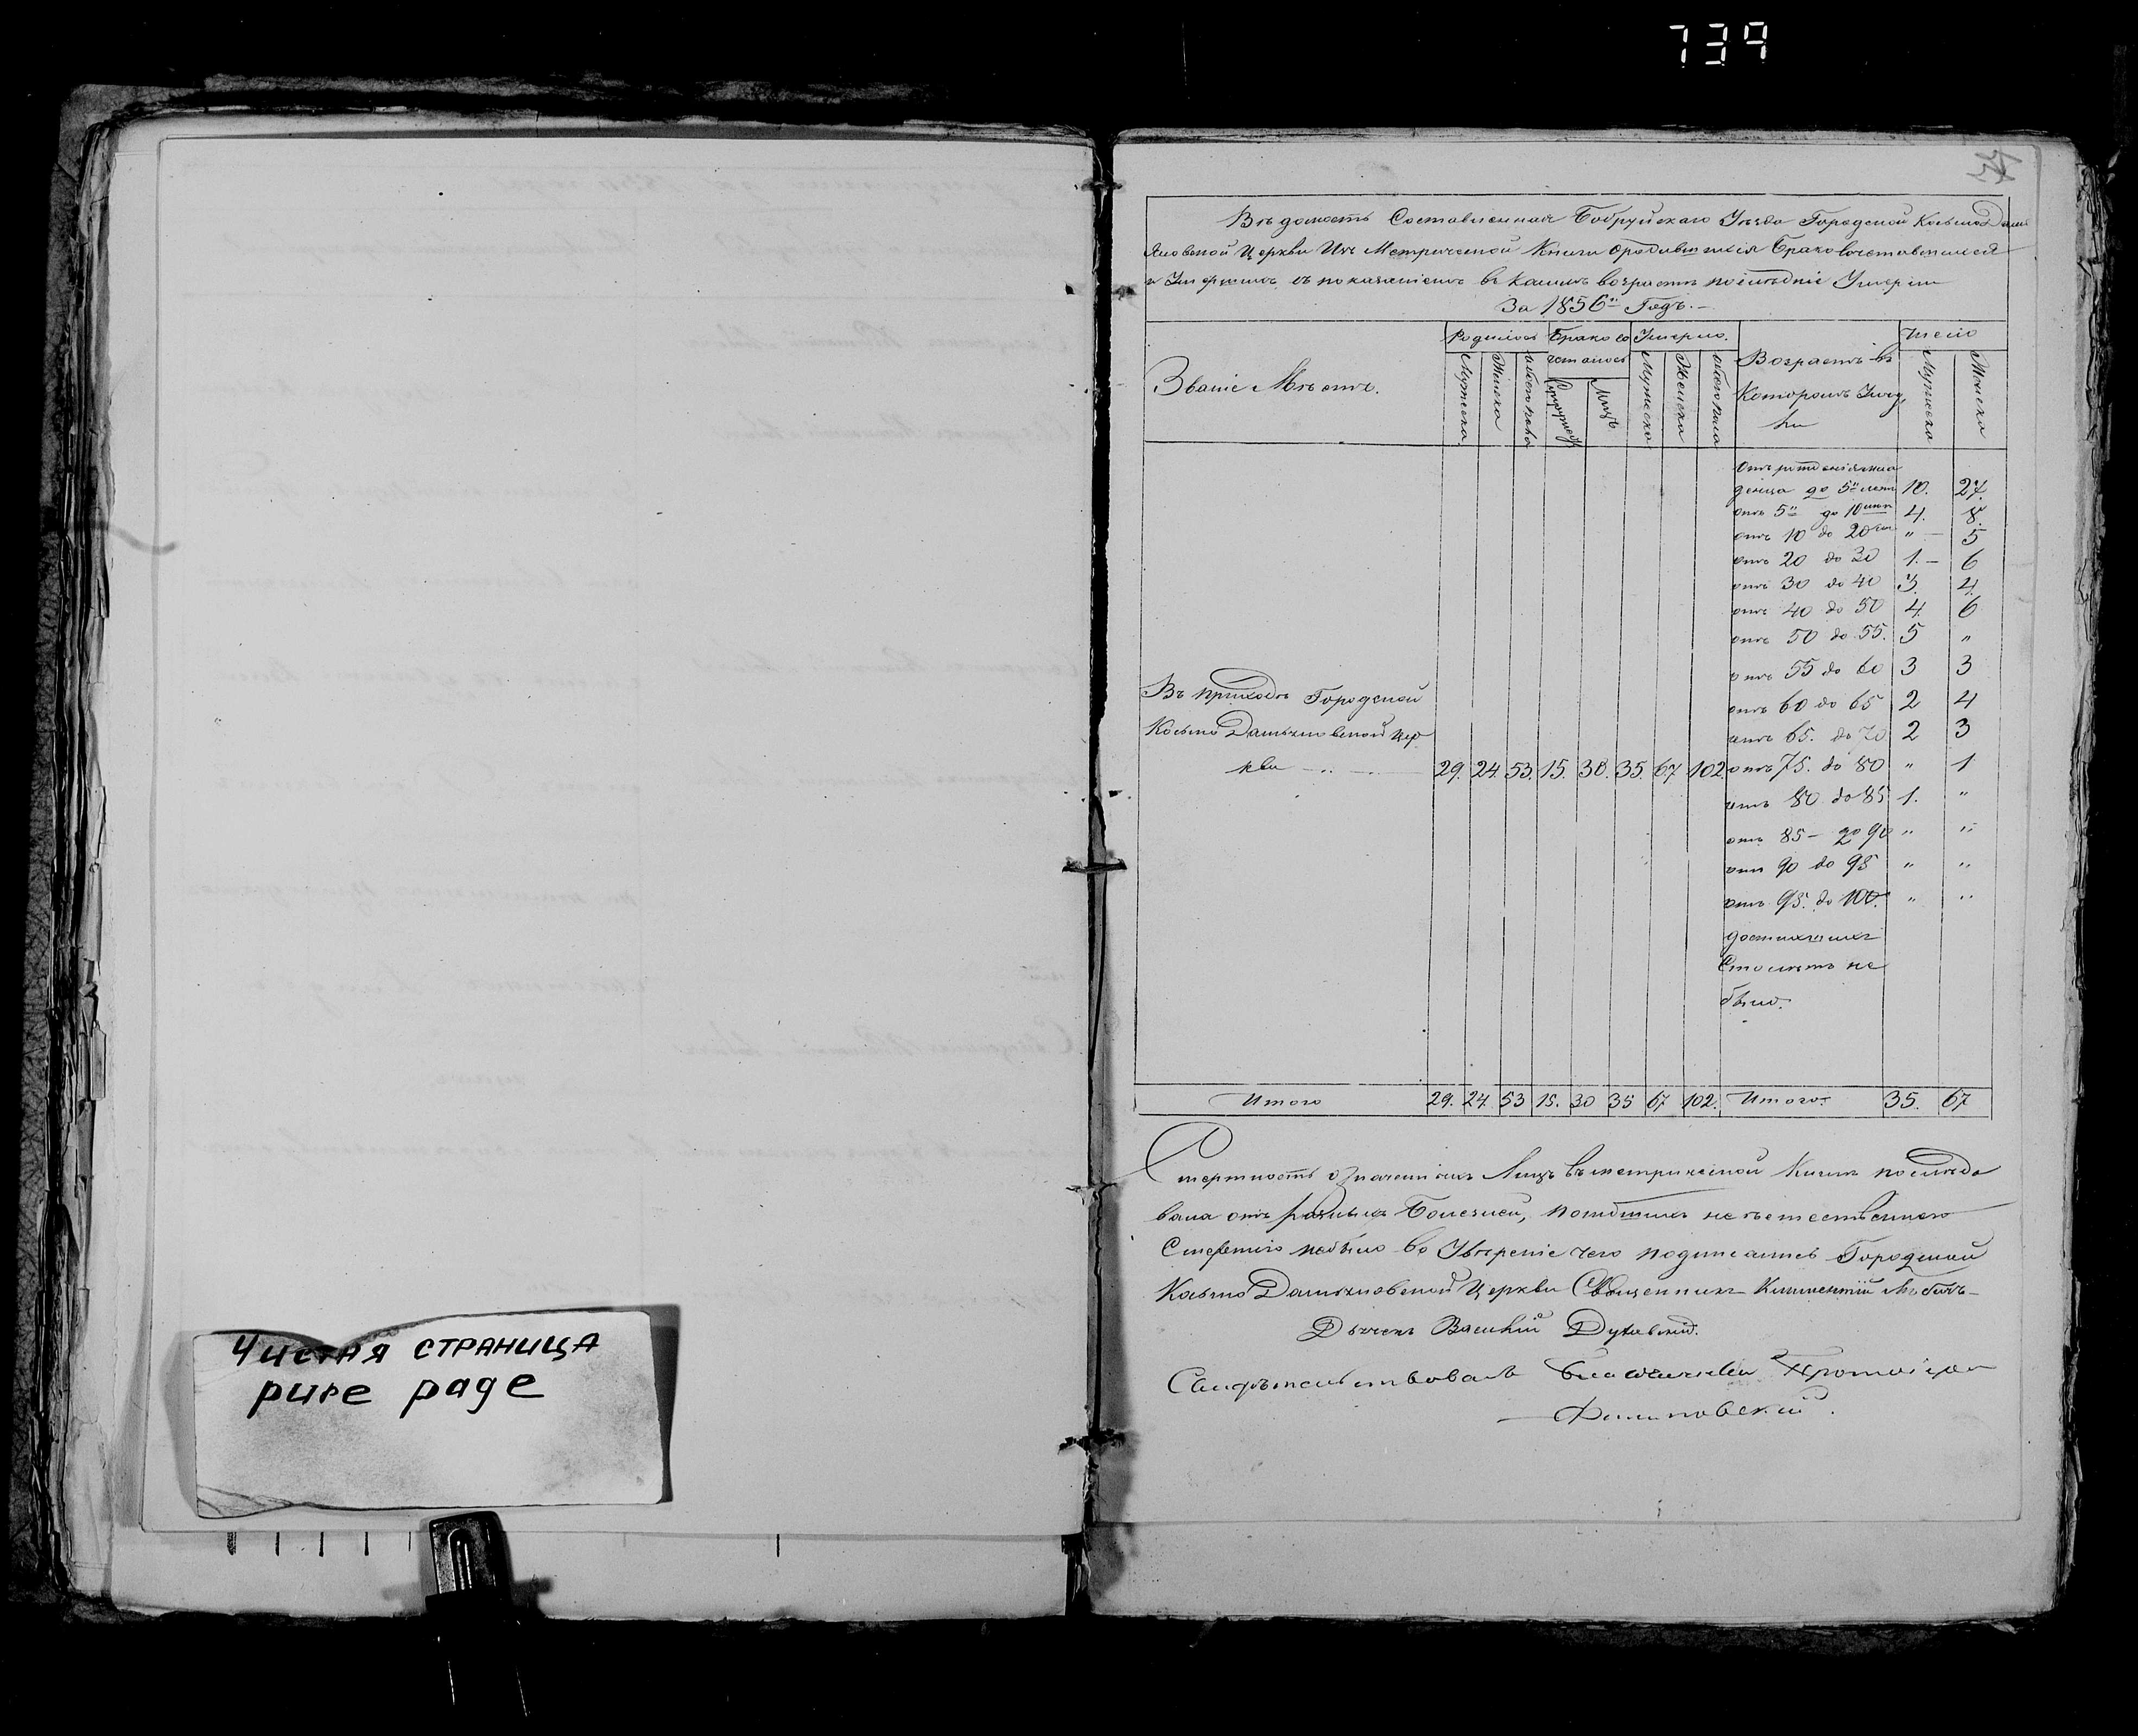 739
Чистая страница
pure page
Вѣдомость Составленная Бобруйскаго Уѣзда Городской Косьмо Дамі
яновской Церкви Изъ Метрической Книги о родившихся Бракосочетавшихся
и Умершихъ съ показаніемъ въ какихъ возрастѣ послѣдніе Умерли
За 1856й Годъ.
Званіе Мѣстъ.
Родилось
Мужеска
Женска
обоего пола
Бракосо
четалось
Супружес
Лицъ
Умерло.
Мужеска
Женска
обоего пола
Возрастъ въ
Которомъ Умер
ли
Число
Мужеска
Женска
Отъ рожденія мла
денца до 5и лет 10. 27.
отъ 5и до 10 4. 8.
отъ 10 до 20 " — 5
отъ 20 до 30 1. — 6
отъ 30 до 40 3. 4.
отъ 40 до 50 4. 6
отъ 50 до 55. 5 "
отъ 55 до 60 3 3
отъ 60 до 65 2 4
отъ 65. до 70 2 3
Въ приходѣ Городской
Косьмо Даміяновской Цер
кви 29. 24. 53. 15. 30. 35. 67 102
отъ 75. до 80 " 1
отъ 80 до 85 1. "
отъ 85 — до 90 " "
отъ 90 до 95 " "
отъ 95. до 100. " "
достигшихъ
Столѣтъ не
было.
Итого 29. 24. 53 15. 30 35 67 102. Итого. 35. 67
Смертность означенныхъ Лицъ въ метрической Книгѣ послѣдо
вала отъ разныхъ Болезней, погибшихъ неъестественною
Смертію небыло во Увѣреніе чего подписались Городской
Косьмо Даміяновской Церкви Священникъ Климентій
Дьячекъ Василій Духовскій.
Свидѣтельствовалъ Благочинный Протоіерей